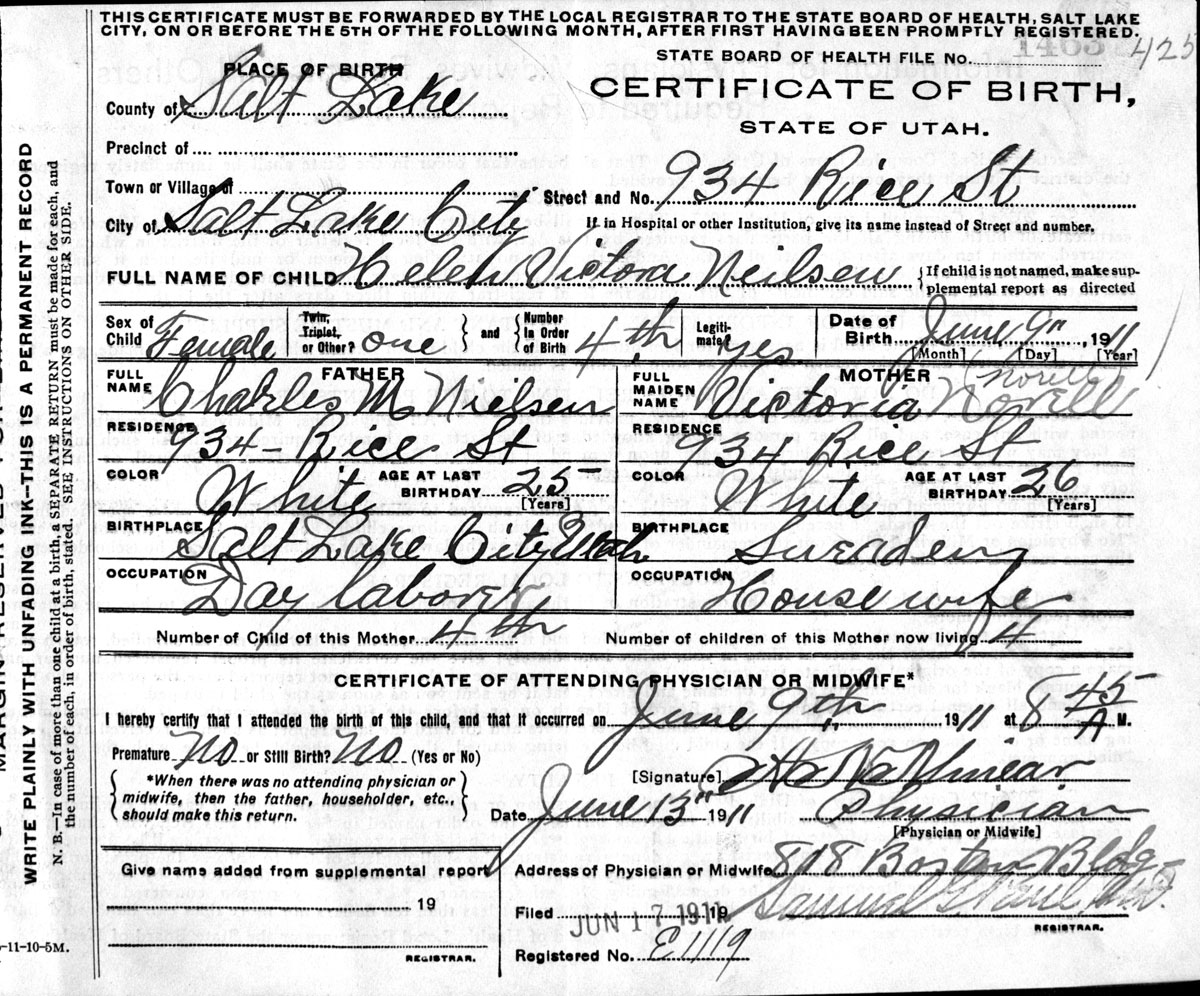 THIS CERTIFICATE MUST BE FORWARDED BY THE LOCAL REGISTRAR TO THE STATE BOARD OF HEALTH, SALT LAKE
CITY, ON OR BEFORE THE 5TH OF THE FOLLOWING MONTH, AFTER FIRST HAVING BEEN PROMPTLY REGISTERED.
STATE BOARD OF HEALTH FILE No. 425
PLACE OF BIRTH
CERTIFICATE OF BIRTH,
County of Salt Lake
STATE OF UTAH.
Precinct of
Town or Village of
Street and No. 934 Rice St
City of Salt Lake City
If in Hospital or other Institution, give its name instead of Street and number.
FULL NAME OF CHILD Helen Victora Neilsen
If child is not named, make sup-
plemental report as directed
Sex of Child Female
Twin, Triplet, or Other? one
and
Number in Order of Birth 4th
Legiti-mate? Yes
Date of Birth June 9", 1911
[Month] [Day] [Year]
FATHER
FULL NAME Charles M Nielsen
RESIDENCE 934 - Rice St
COLOR White
AGE AT LAST BIRTHDAY 25 [Years]
BIRTHPLACE Salt Lake City Utah
OCCUPATION Day laborer
MOTHER
FULL MAIDEN NAME Victoria Norell
Norell
RESIDENCE 934 Rice St
COLOR White
AGE AT LAST BIRTHDAY 26 [Years]
BIRTHPLACE Sweaden
OCCUPATION House wife
Number of Child of this Mother 4th
Number of children of this Mother now living 4
CERTIFICATE OF ATTENDING PHYSICIAN OR MIDWIFE*
I hereby certify that I attended the birth of this child, and that it occurred on June 9th, 1911 at 8 45 A M.
Premature No or Still Birth? No (Yes or No)
*When there was no attending physician or
midwife, then the father, householder, etc.,
should make this return.
[Signature]
Date June 13" 1911
Physician
[Physician or Midwife]
Give name added from supplemental report
19
REGISTRAR.
Address of Physician or Midwife 808 Boston Bldg
Filed JUN 17 1911 19
Samuel G. Paul, M.D.
REGISTRAR.
Registered No. E1119
MARGIN RESERVED FOR
WRITE PLAINLY WITH UNFADING INK--THIS IS A PERMANENT RECORD
N. B.—In case of more than one child at a birth, a SEPARATE RETURN must be made for each, and
the number of each, in order of birth, stated. SEE INSTRUCTIONS ON OTHER SIDE.
-11-10-5M.